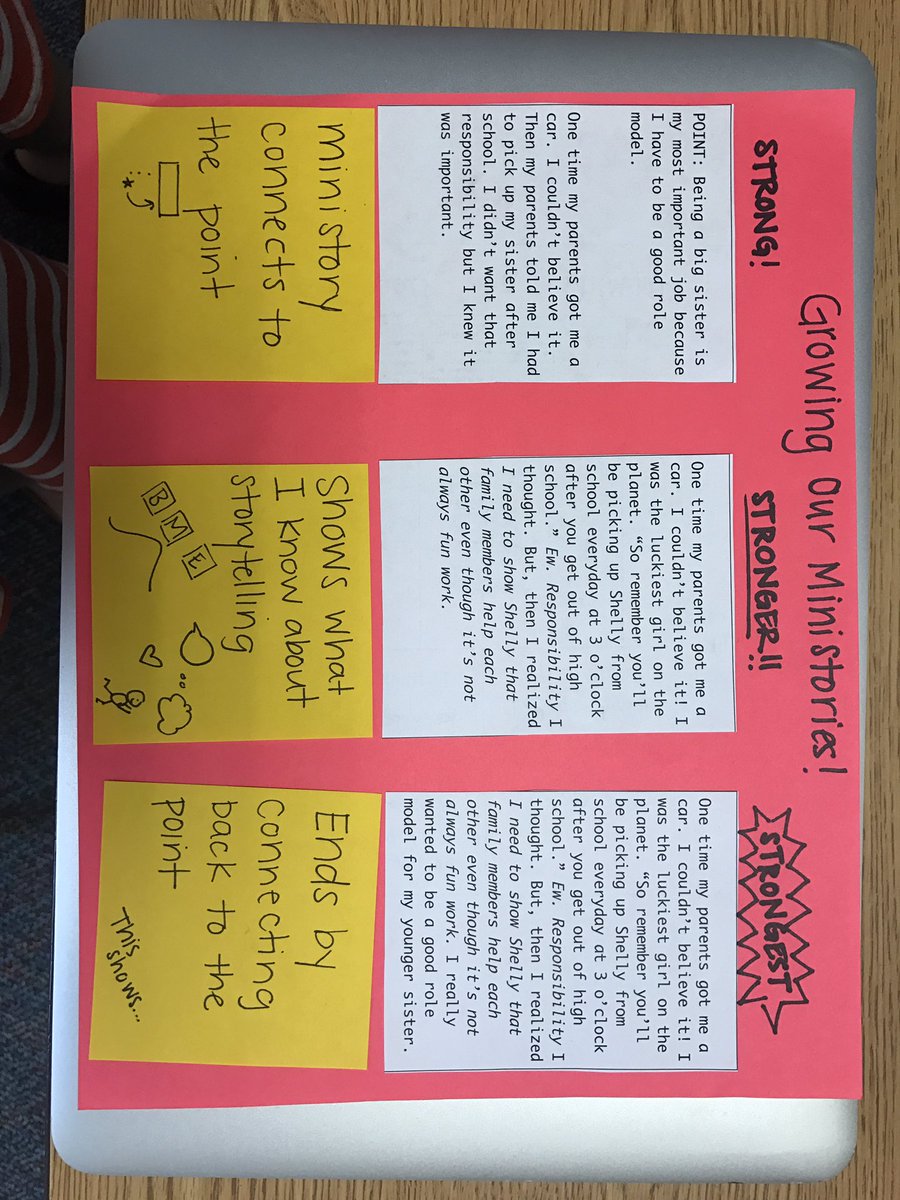 Growing Our Ministories!
STRONG!
POINT: Being a big sister is
my most important job because
I have to be a good role
model.
One time my parents got me a
car. I couldn't believe it.
Then my parents told me I had
to pick up my sister after
school. I didn't want that
responsibility but I knew it
was important.
ministory
connects to
the point
STRONGER!!
One time my parents got me a
car. I couldn't believe it! I
was the luckiest girl on the
planet. “So remember you'll
be picking up Shelly from
school everyday at 3 o'clock
after you get out of high
school.” Ew. Responsibility I
thought. But, then I realized
I need to show Shelly that
family members help each
other even though it's not
always fun work.
Shows what
I know about
storytelling
B M E
STRONGEST
One time my parents got me a
car. I couldn't believe it! I
was the luckiest girl on the
planet. “So remember you'll
be picking up Shelly from
school everyday at 3 o'clock
after you get out of high
school.” Ew. Responsibility I
thought. But, then I realized
I need to show Shelly that
family members help each
other even though it's not
always fun work. I really
wanted to be a good role
model for my younger sister.
Ends by
connecting
back to the
point
This
shows...